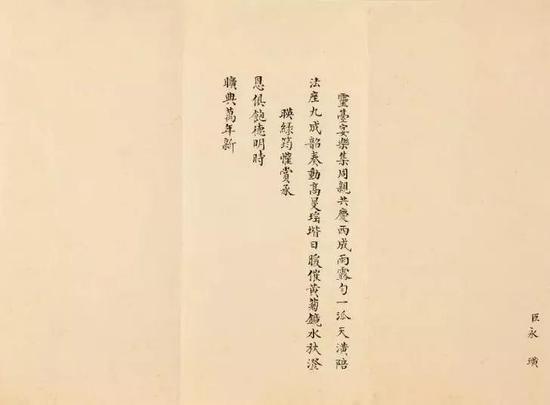 臣永璜
靈臺宴樂集周親共慶西成雨露勻一派天潢陪
法座九成韶奏動高旻瑤堦日暖催黃菊鏡水秋澄
暎綠筠懽賞承
恩俱飽德明時
曠典萬年新